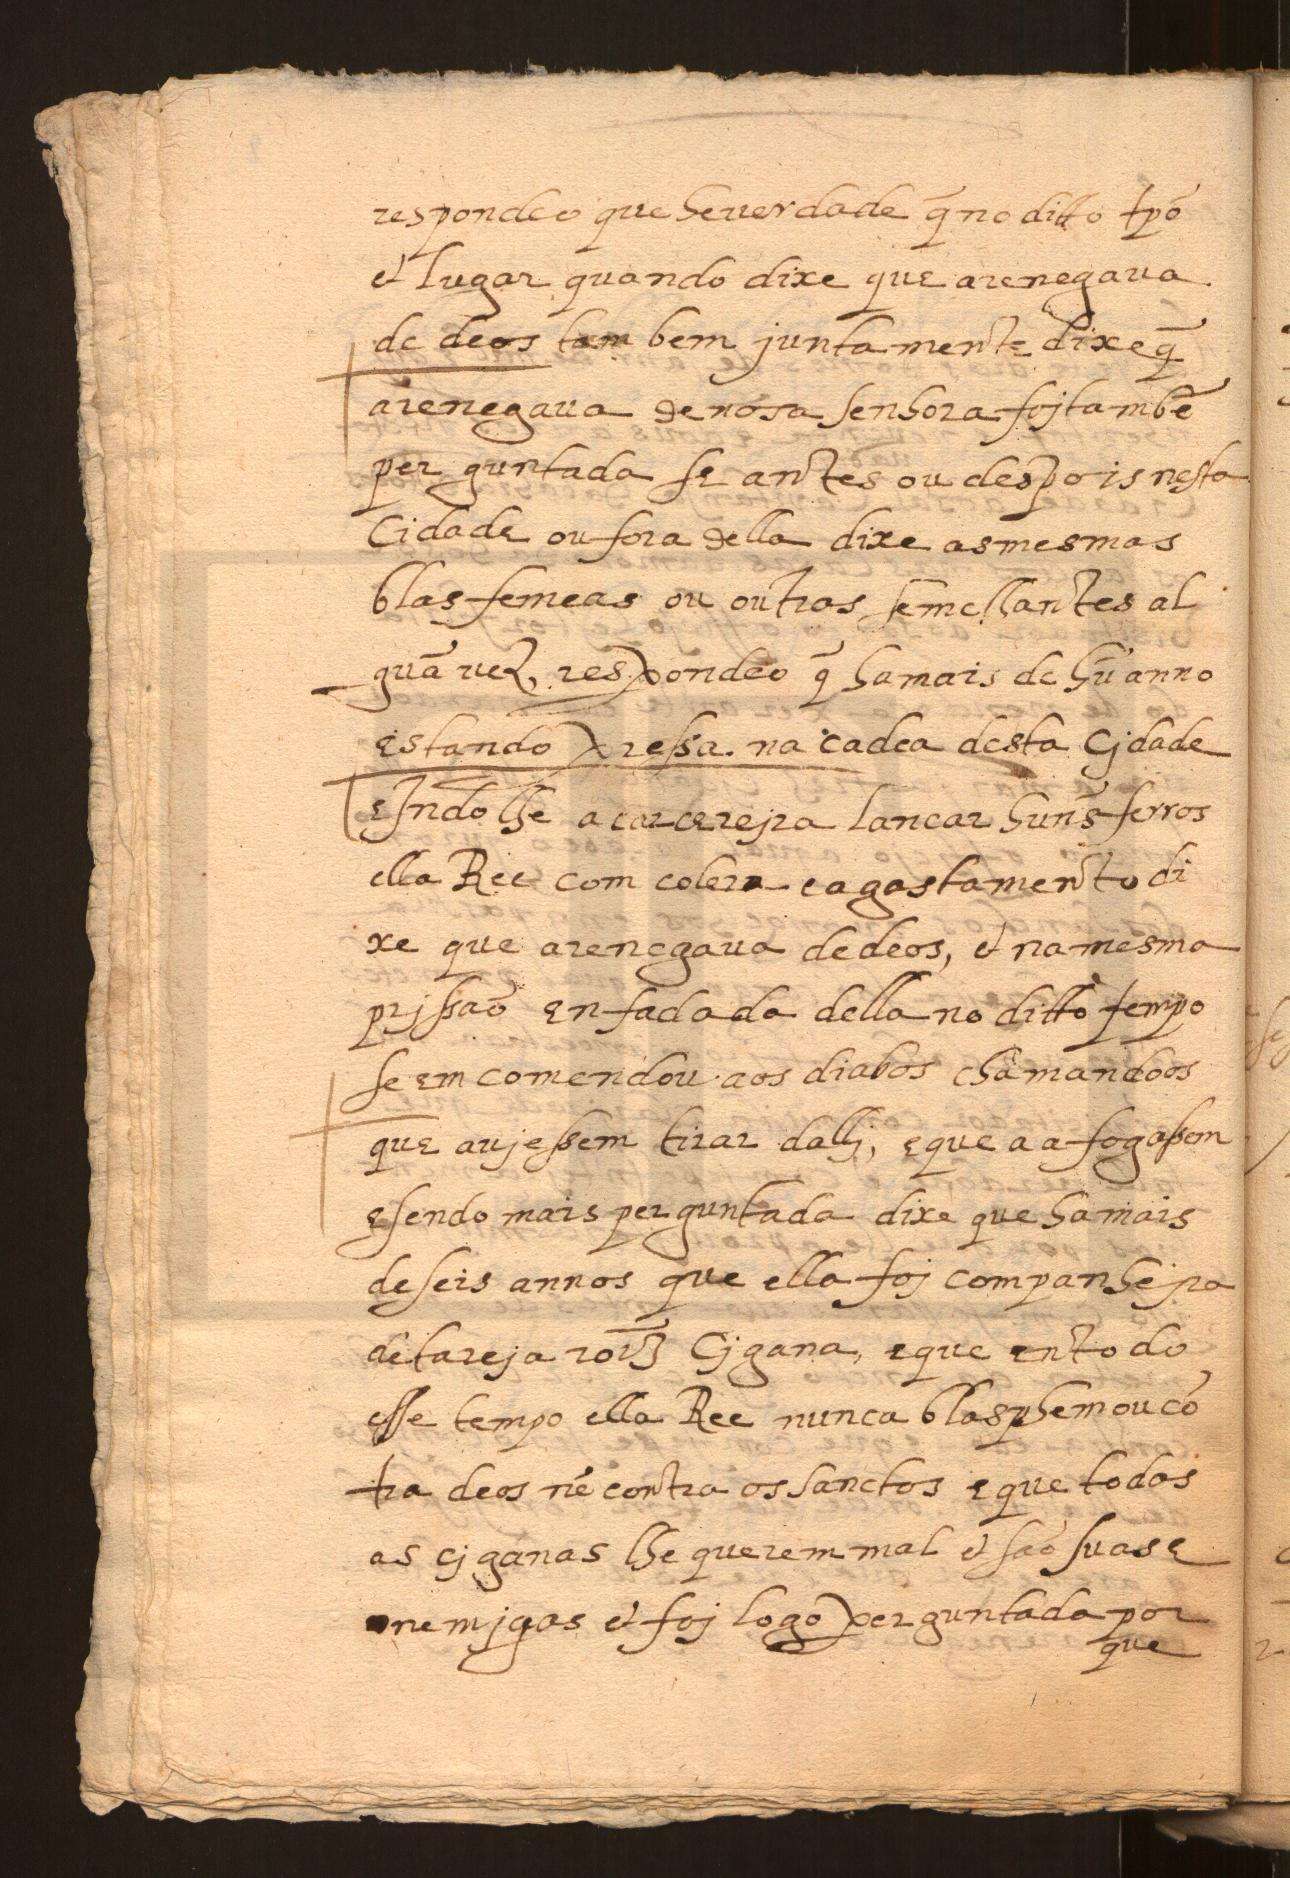 respondeo que he verdade q̃ no ditto tpõ
et lugar quando dixe que arenegaua
de deos tam bem junta mente dixe q̃
arenegaua de nosa senhora foj tambẽ
per guntada se antes ou despois nesta
Cidade ou fora della dixe as mesmas
blasfemeas ou outras semellantes al
guã vez, respondeo q̃ ha mais de hũ anno
estando pressa na cadea desta Cjdade
e Indo lhe a carcerejra lancar hunŝ ferros
ella Ree com colera e agastamento di
xe que arenegaua de deos, et na mesma
prjssaõ enfadada della no ditto tempo
se em comendou aos diabos chamandoos
que a vjessem tirar dallj, e que a afogassem
e sendo mais per guntada dixe que ha mais
de seis annos que ella foj companhejra
de tareja roĩz Cjgana, e que en todo
esse tempo ella Ree nunca blasphemou cõ
tra deos nẽ contra os sanctos e que todas
as cjganas lhe querem mal et saõ suas e
nemjgas et foj logo perguntada por
que